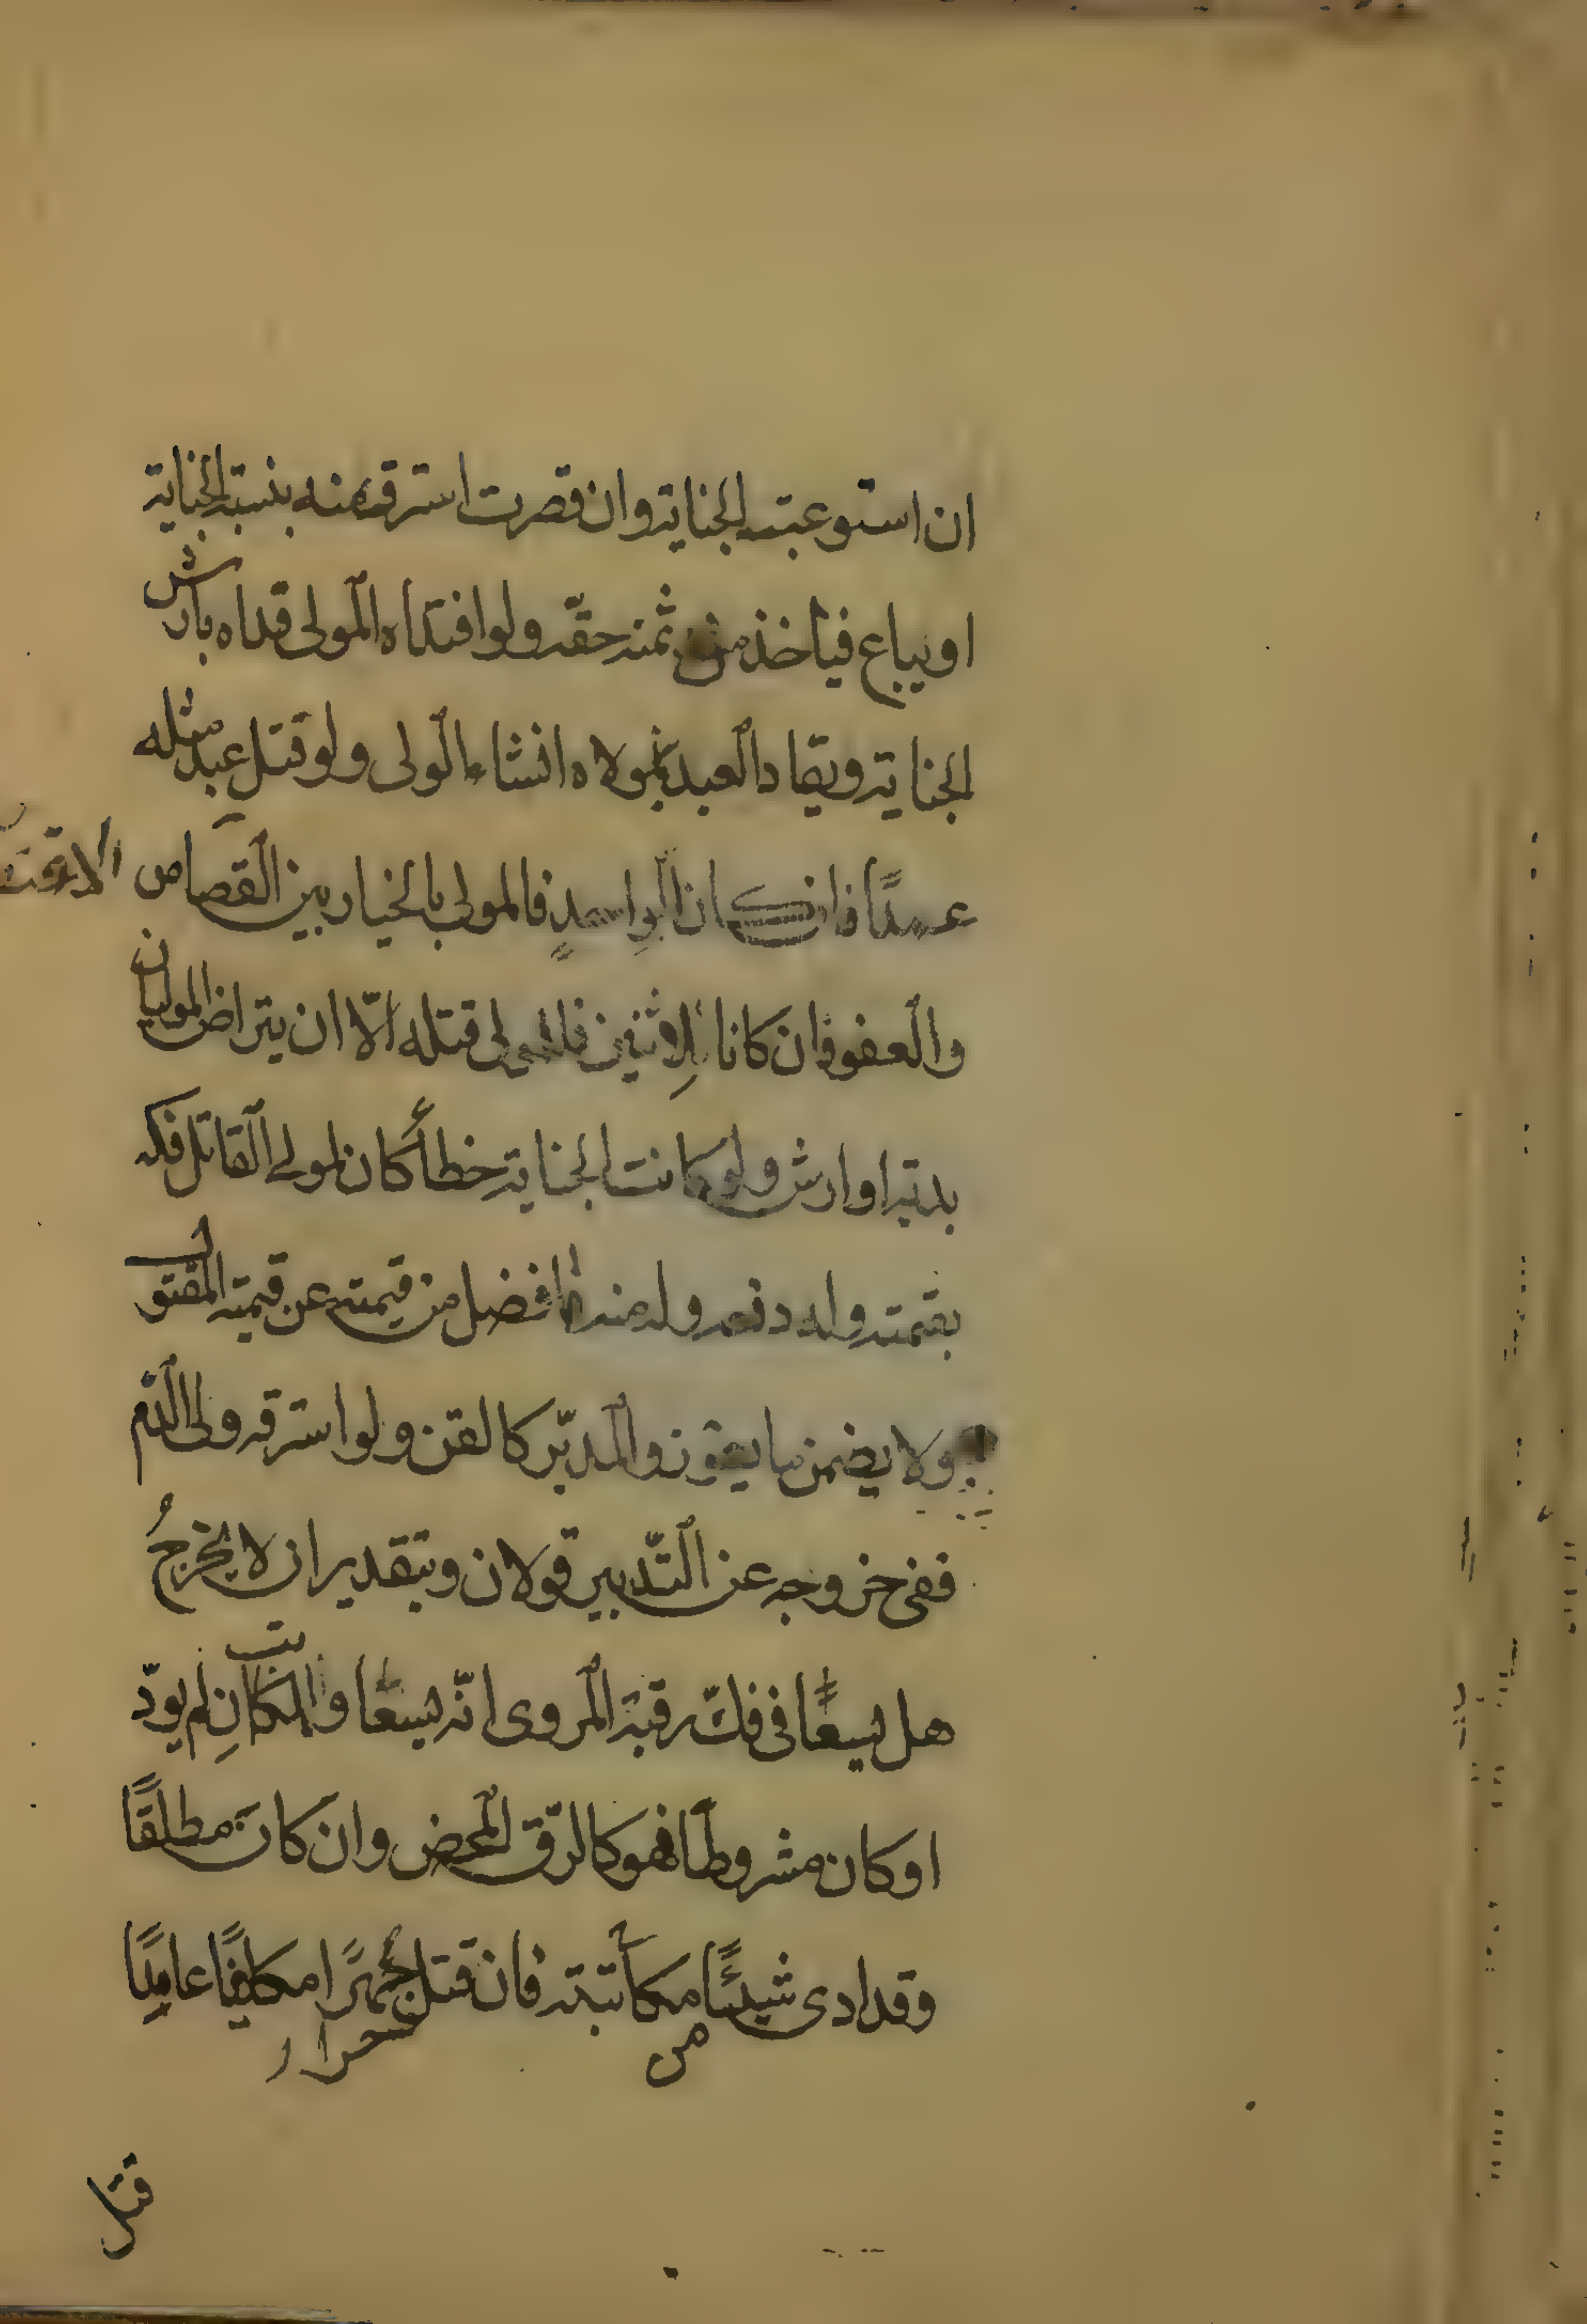 ان استوعبته الجناية وان قصرت استرق منه بنسبة الجناية
او يباع فياخذ من ثمنه حقّه ولو افتداه المولى فداه بارش
الجناية ويقاد العبد بمولاه انشاء الولى ولو قتل عبد مثله
عمدًا فان كانا لواحدٍ فالمولى بالخيار بين القصاص
والعفو وان كانا لاثنين فللمولى قتله الّا ان يتراض الموليان
بدية او ارش ولو كانت الجناية خطأً كان لمولى القاتل فكه
بقيمته وله دفعه وله منه ما فضل من قيمته عن قيمة المقتول
ولا يضمن ما يعوز والمدبّر كالقن ولو استرقه ولى الدم
ففى خروجه عن التّدبير قولان وبتقدير ان لا يخرجُ
هل يسعا فى فكّ رقبته المروى انّه يسعا والمكاتب انِ لم يودّ
او كان مشروطًا فهو كالرّق المحض وان كان مطلقًا
وقد ادى شيئًا من مكاتبته فان قتل حرًا مكافيًا عامدًا
حرا
قتل